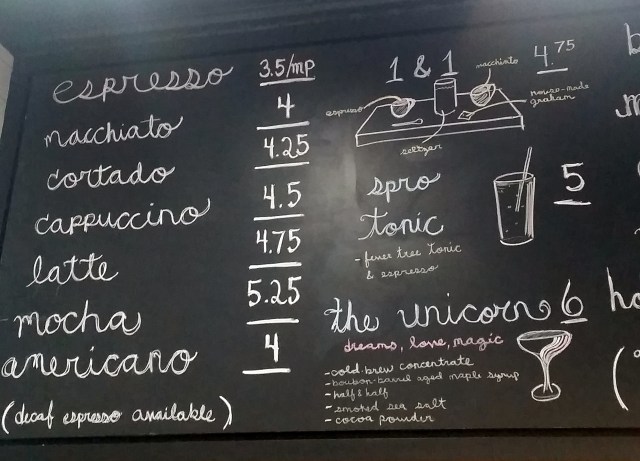 espresso 3.5/mp
macchiato 4
cortado 4.25
cappuccino 4.5
latte 4.75
mocha 5.25
americano 4
(decaf espresso available)
1 & 1 4.75
macchiato
espresso
house-made
graham
seltzer
spro
tonic 5
- fever tree tonic
& espresso
the unicorn 6
dreams, love, magic
- cold brew concentrate
- bourbon-barrel aged maple syrup
- half & half
- smoked sea salt
- cocoa powder
b
m
ho
(